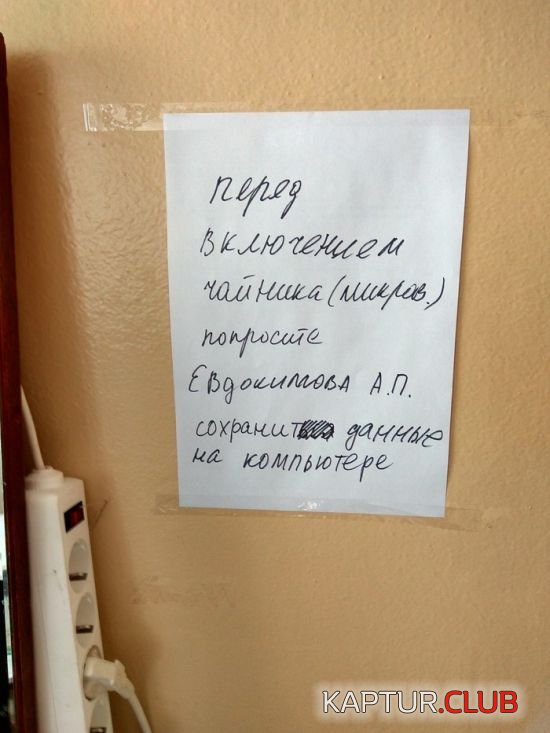 перед
включением
чайника (микров.)
попросите
Евдокимова А.П.
сохранить данные
на компьютере
KAPTUR.CLUB